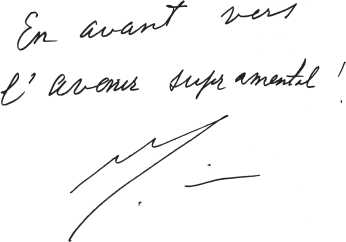 En avant vers
l'avenir supramental!